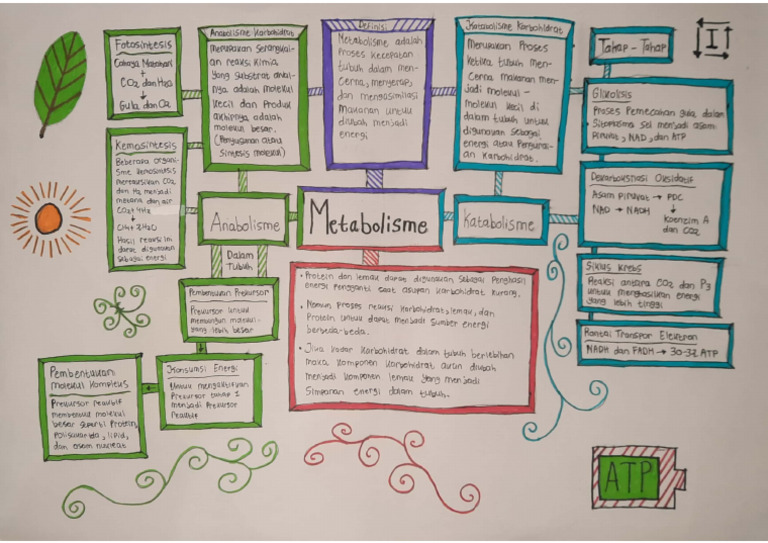 Fotosintesis
Cahaya Matahari
+
CO2 dan H2O
↓
Gula dan O2
Kemosintesis
Beberapa organi-
sme kemosintesis
mereaksikan CO2
dan H2 menjadi
metana dan air
CO2 + 4H2
↓
CH4 + 2H2O
Hasil reaksi ini
dapat digunakan
sebagai energi
Anabolisme Karbohidrat
Merupakan Serangkai-
an reaksi kimia
yang substrat awal-
nya adalah molekul
kecil dan Produk
akhirnya adalah
molekul besar.
(Penyusunan atau
sintesis molekul)
Definisi
Metabolisme adalah
Proses kecepatan
tubuh dalam men-
cerna, menyerap,
dan mengasimilasi
Makanan untuk
diubah menjadi
energi
Katabolisme Karbohidrat
Merupakan Proses
ketika tubuh men-
cerna makanan men-
jadi molekul-
molekul kecil di
dalam tubuh untuk
digunakan sebagai
energi atau Pengurai-
an Karbohidrat.
Tahap - Tahap
I
Glikolisis
Proses Pemecahan gula dalam
Sitoplasma sel menjadi asam
Piruvat, NAD, dan ATP
Dekarboksilasi Oksidatif
Asam Piruvat → PDC
NAD → NADH
↓
koenzim A
dan CO2
Siklus Krebs
Reaksi antara CO2 dan P3
untuk menghasilkan energi
yang lebih tinggi
Rantai Transpor Elektron
NADH dan FADH → 30-32 ATP
Anabolisme
Metabolisme
Katabolisme
Dalam
Tubuh
Pembentukan Prekursor
Prekursor untuk
membangun molekul
yang lebih besar
Konsumsi Energi
Untuk mengaktifkan
Prekursor tahap I
menjadi Prekursor
reaktif
Pembentukan
Molekul Kompleks
Prekursor reaktif
membentuk molekul
besar seperti Protein,
Polisakarida, lipid,
dan asam nukleat
• Protein dan lemak dapat digunakan sebagai Penghasil
energi pengganti saat asupan karbohidrat kurang.
• Namun Proses reaksi karbohidrat, lemak, dan
Protein untuk dapat menjadi sumber energi
berbeda-beda.
• Jika kadar karbohidrat dalam tubuh berlebihan
maka komponen karbohidrat akan diubah
menjadi komponen lemak yang menjadi
simpanan energi dalam tubuh.
ATP